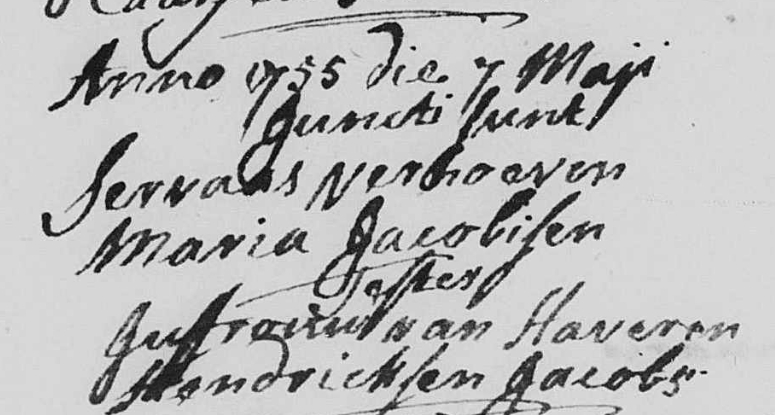 Anno 1755 die 7 Maji
Juncti sunt
Servaas verhoeven
Maria Jacobisen
Testes
Jufrouw van Haveren
Hendricksen Jacobs